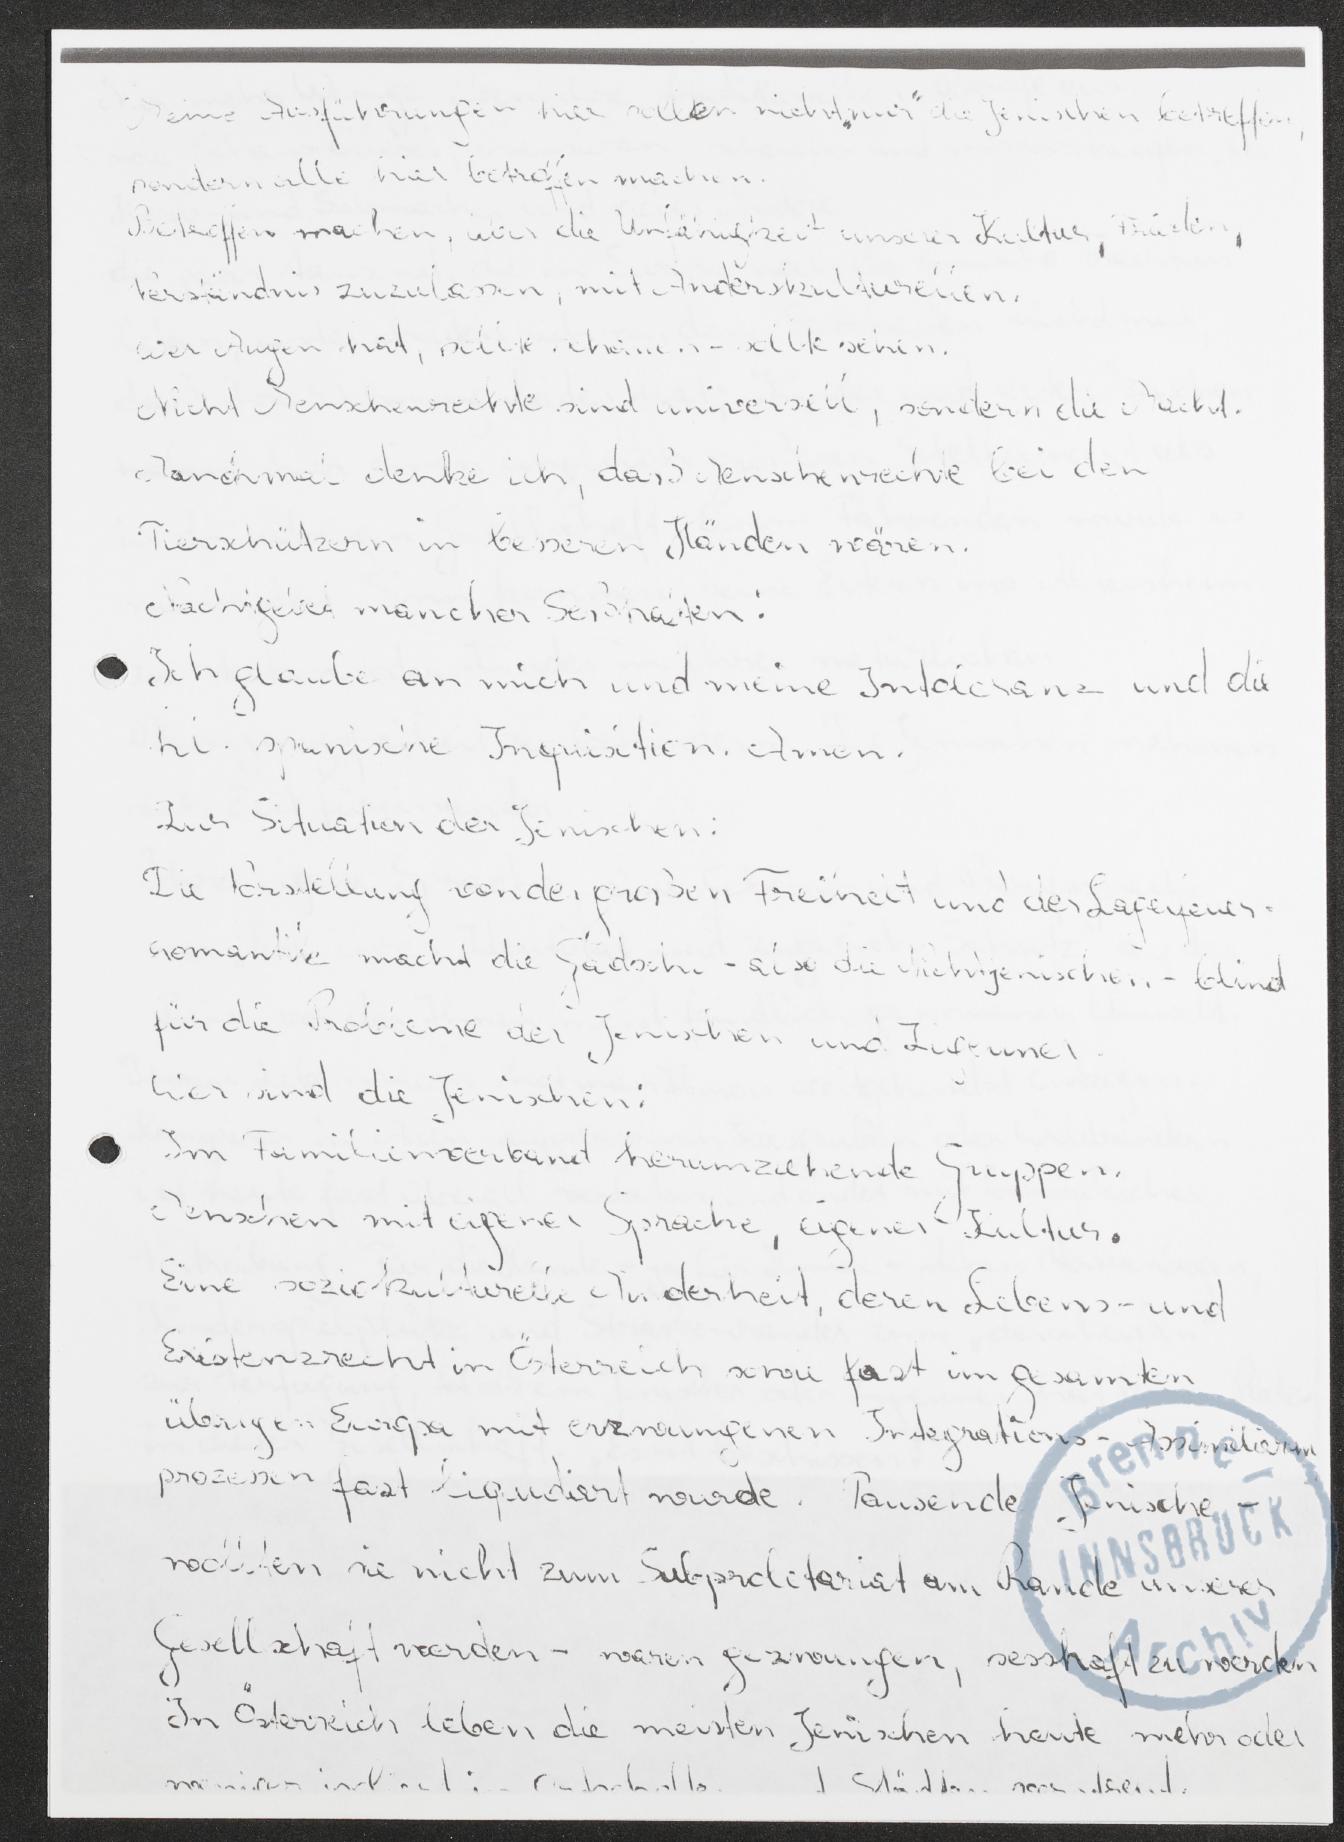 Meine Ausführungen hier sollen nicht "nur" die Jenischen betreffen,
sondern alle hier betroffen machen.
Betroffen machen, über die Unfähigkeit unserer Kultur, Frieden,
Verständnis zuzulassen, mit Anderskulturellen.
Wer Augen hat, sollte schauen - sollte sehen.
Nicht Menschenrechte sind universell, sondern die Macht.
Manchmal denke ich, dass Menschenrechte bei den
Tierschützern in besseren Händen wären.
mancher Seßhaften:
Ich glaube an mich und meine Intoleranz und die
hl. spanische Inquisition. Amen.
Zur Situation der Jenischen:
Die Vorstellung von der großen Freiheit und der Lagerfeuer-
romantik macht die Gadsche - also die Nichtjenischen - blind
für die Probleme der Jenischen und Zigeuner.
Wer sind die Jenischen:
Im Familienverband herumziehende Gruppen.
Menschen mit eigener Sprache, eigener Kultur.
Eine soziokulturelle Minderheit, deren Lebens- und
Existenzrecht in Österreich sowie fast im gesamten
übrigen Europa mit erzwungenen Integrations- Assimilierungs
prozessen fast liqudiert wurde. Tausende Jenische -
wollten sie nicht zum Subproletariat am Rande unserer
Gesellschaft werden - waren gezwungen, sesshaft zu werden
In Österreich leben die meisten Jenischen heute mehr oder
weniger
Brenner-
INNSBRUCK
Archiv